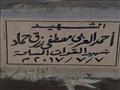 الشهيد
أحمد العربي مصطفى رزق حماد
شهيد القوات المسلحة
٢٠١٧/٧/٧ م